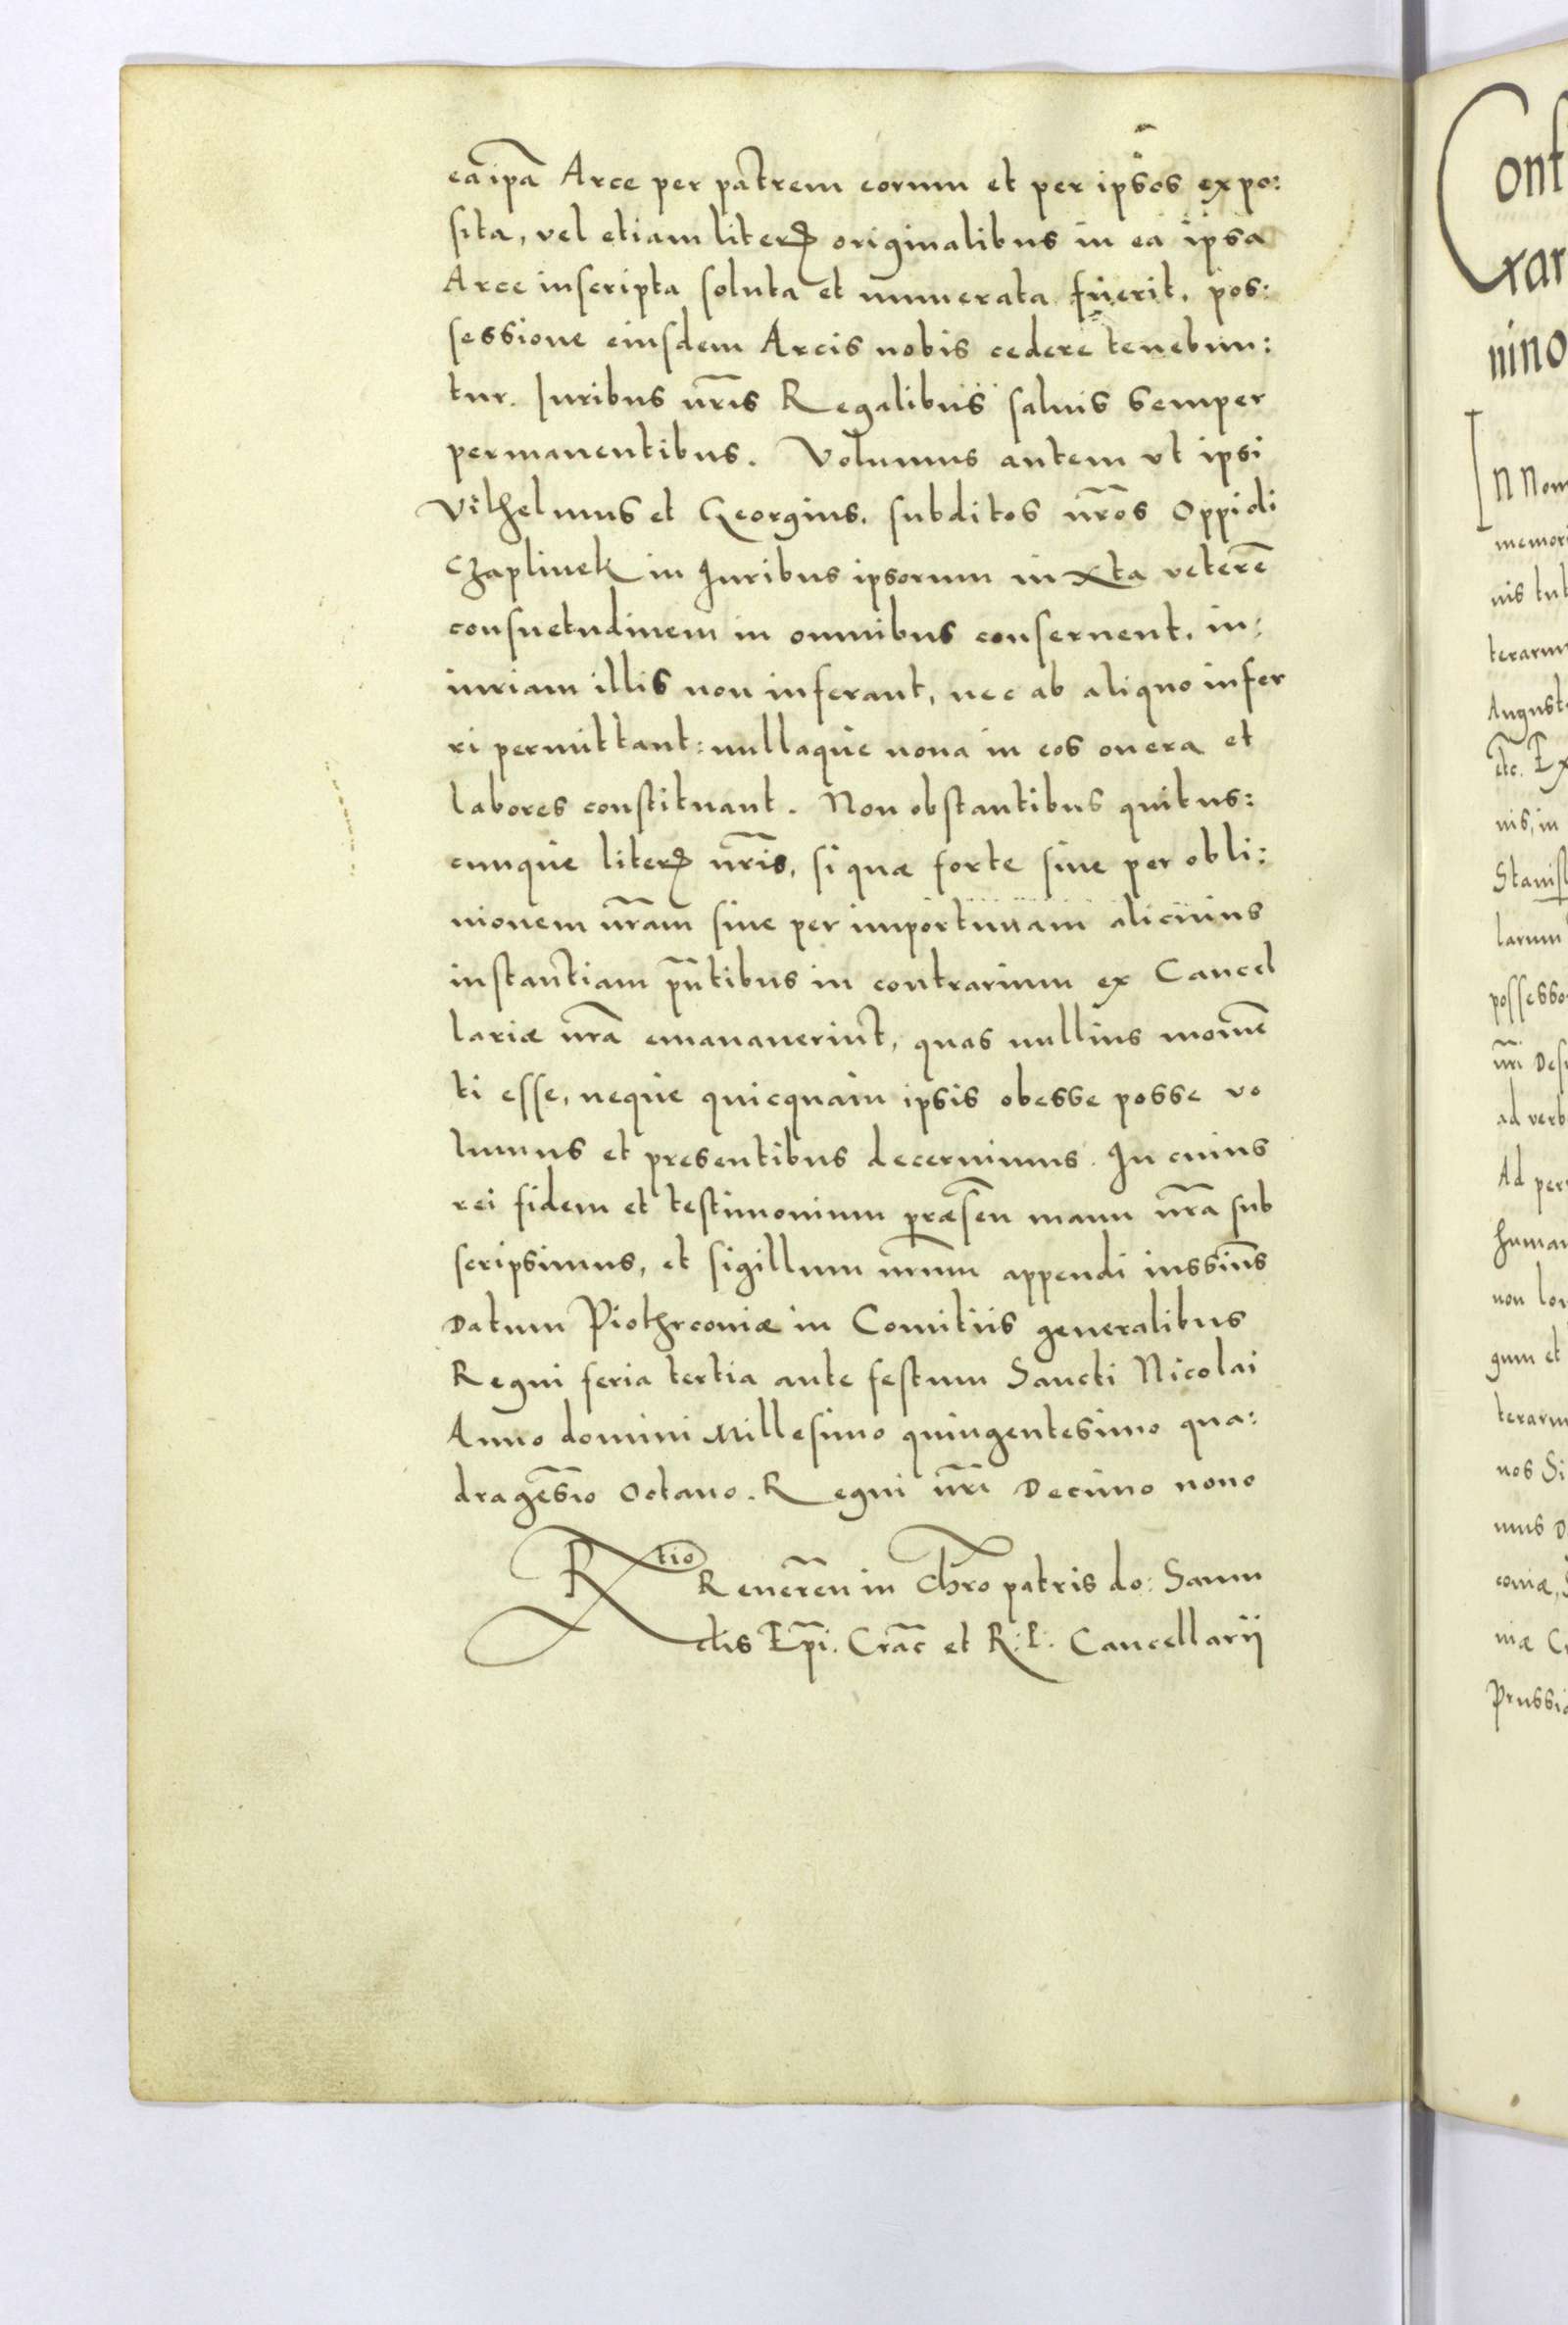 ea ipã Arce per patrem eorum et per ipsos expo:
sita, vel etiam literꝶ originalibus in ea ipsa
Arce inscripta soluta et numerata fuerit, pos:
sessione eiusdem Arcis nobis cedere tenebun:
tur. Iuribus nr̃is Regalibus saluis semper
permanentibus. Volumus autem vt ipsi
Vilhelmus et Georgius, subditos nr̃os Oppidi
Czaplinek in Iuribus ipsorum iuxta veterẽ
consuetudinem in omnibus conseruent, in:
iuriam illis non inferant, nec ab aliquo infer
ri permittant: nullaque noua in eos onera et
labores constituant. Non obstantibus quibus:
cunque literꝶ nr̃is, si quæ forte siue per obli:
uionem nr̃am siue per importunam alicuius
instantiam pñtibus in contrarium ex Cancel
lariæ nr̃a emanauerint, quas nullius momẽ
ti esse, neque quicquam ipsis obesse posse vo
lumus et presentibus decernimus. In cuius
rei fidem et testimonium præseñ manu nr̃a sub
scripsimus, et sigillum nr̃um appendi iussim̃s
Datum Piothrcouiæ in Comitiis generalibus
Regni feria tertia ante festum Sancti Nicolai
Anno domini Millesimo quingentesimo qua:
dragesĩo Octauo. Regni nr̃i Decimo nono
R tio Reuereñ in Chr̃o patris do: Samu
elis Ep̃i. Crac̃ et R. P. Cancellarij
Conf
rar
nino
In Nom
memori
nis tut
terarum
Augusto
etc. Ex
nis, in
Stanisl
larum
possesso
nr̃i Des
ad verb
Ad per
human
non lon
gum et
terarum
nos Si
mus D
couiæ,
niæ Cr
Prussiæ